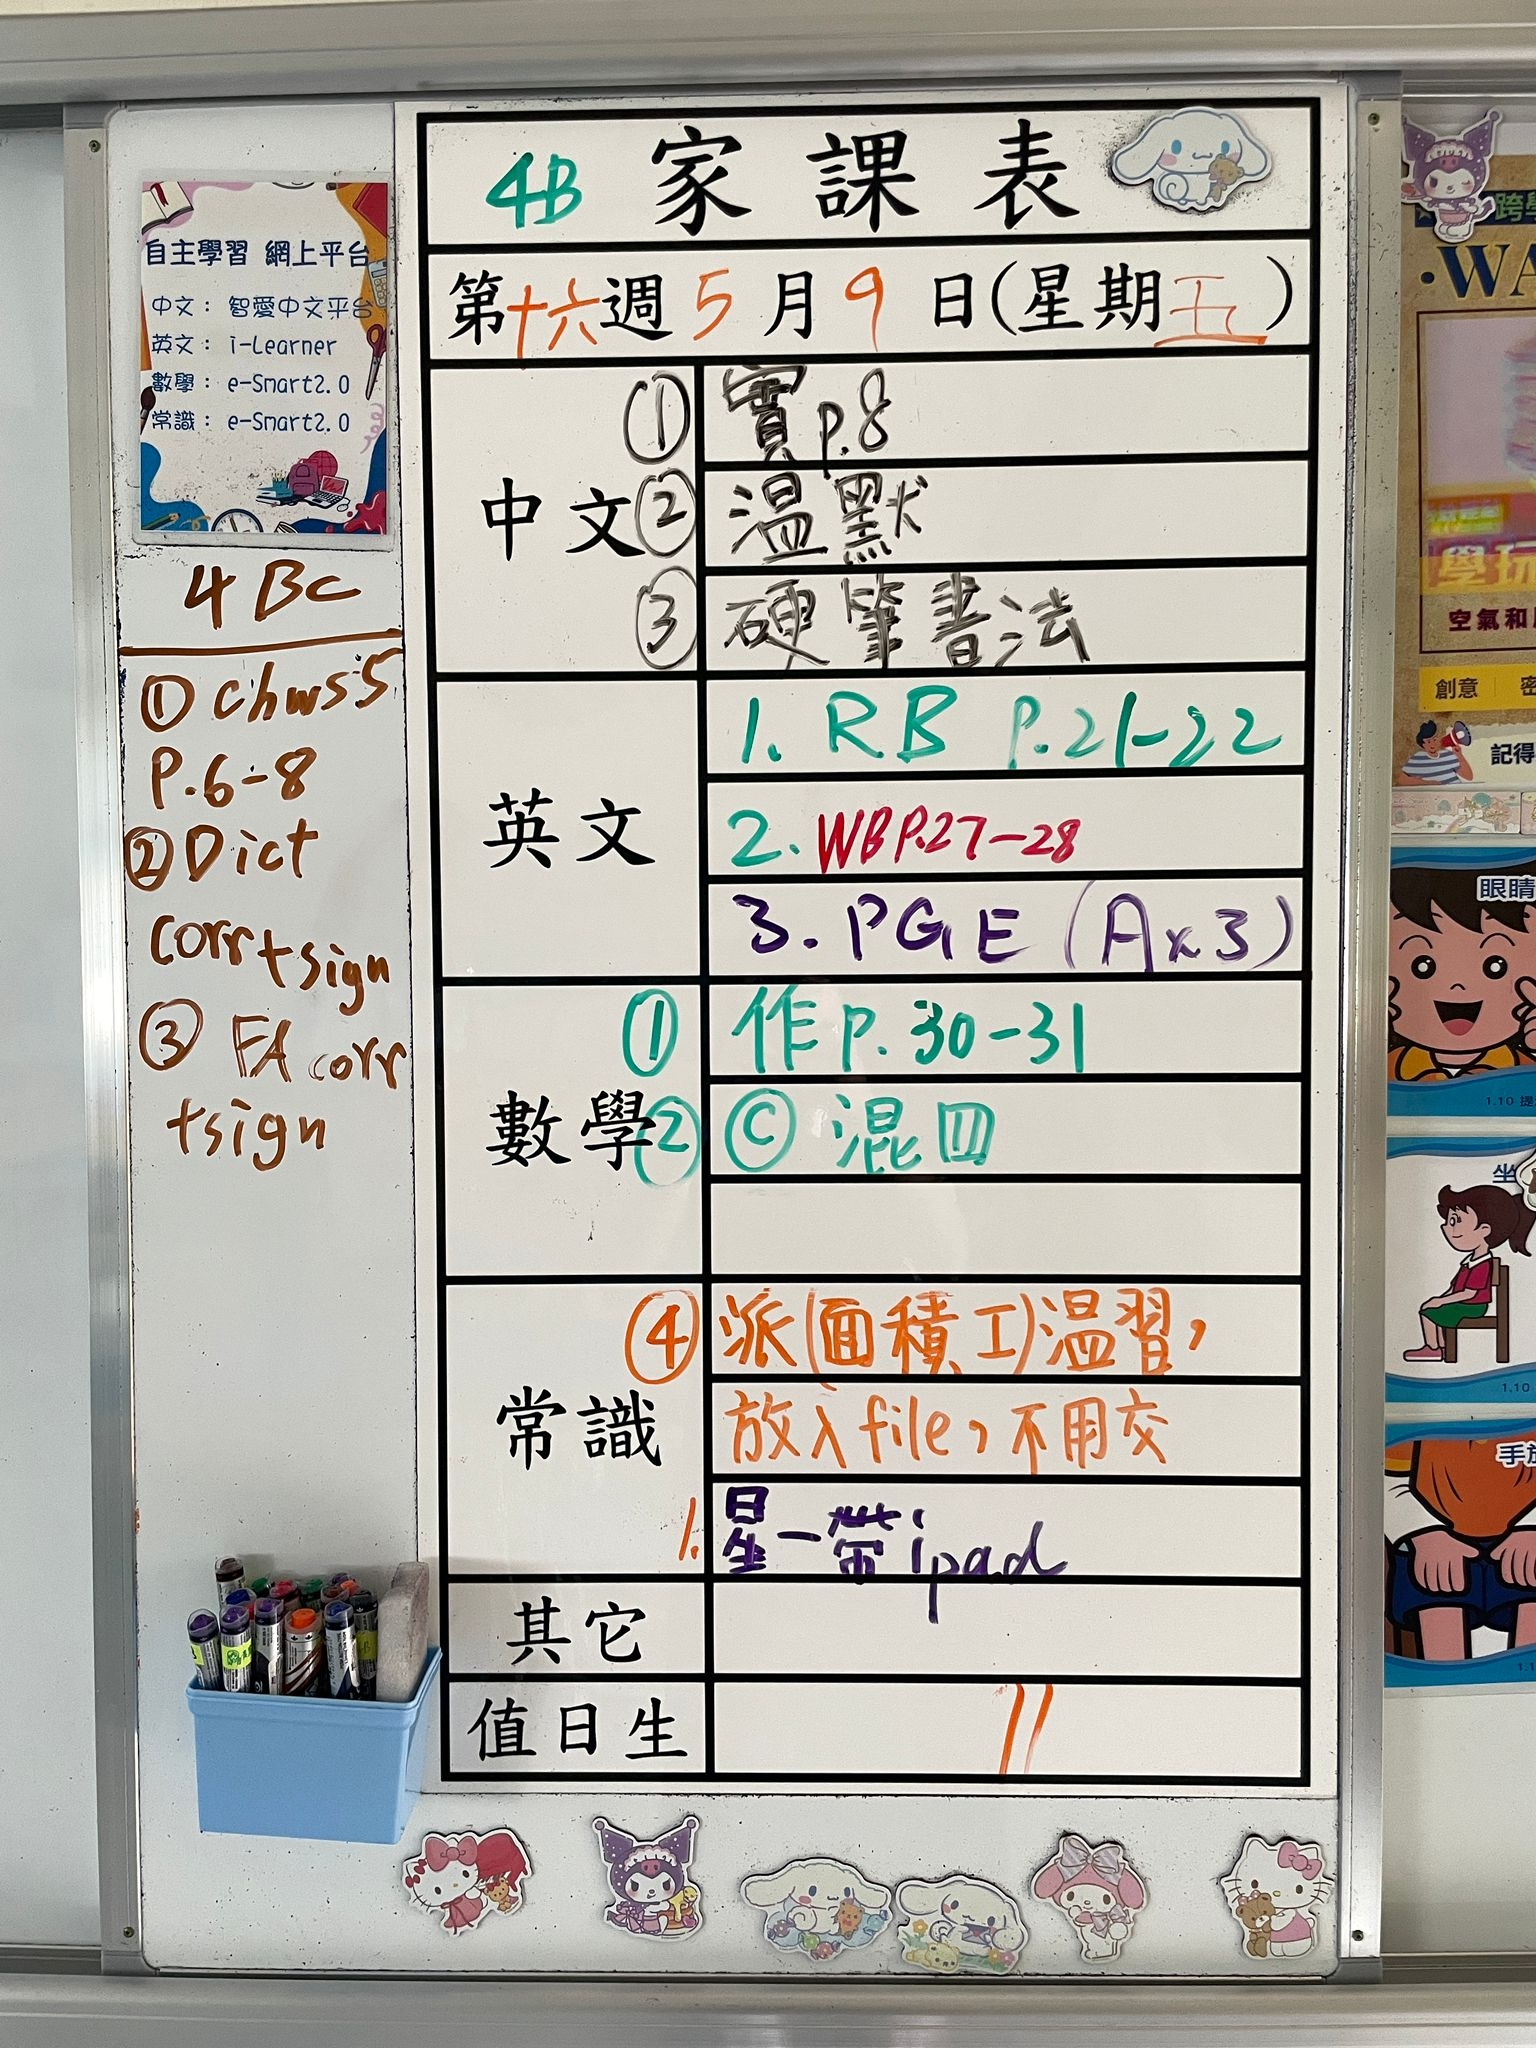 4B 家課表
第十六週 5月9日(星期五)
自主學習 網上平台
中文： 智愛中文平台
英文： i-Learner
數學： e-Smart2.0
常識： e-Smart2.0
4BC
① Chws5
P.6-8
② Dict
corr+sign
③ FA corr
+sign
中文
① 實p.8
② 溫默
③ 硬筆書法
英文
1. RB P.21-22
2. WB P.27-28
3. PGE (A×3)
數學
① 作P. 30-31
② Ⓒ 混四
常識
④ 派(面積工)溫習，
放入file，不用交
1. 星一帶ipad
其它
值日生 11
跨學
·WA
學玩
空氣和
創意 密
記得
眼睛
1.10 提
坐
1.10
手放
1.1